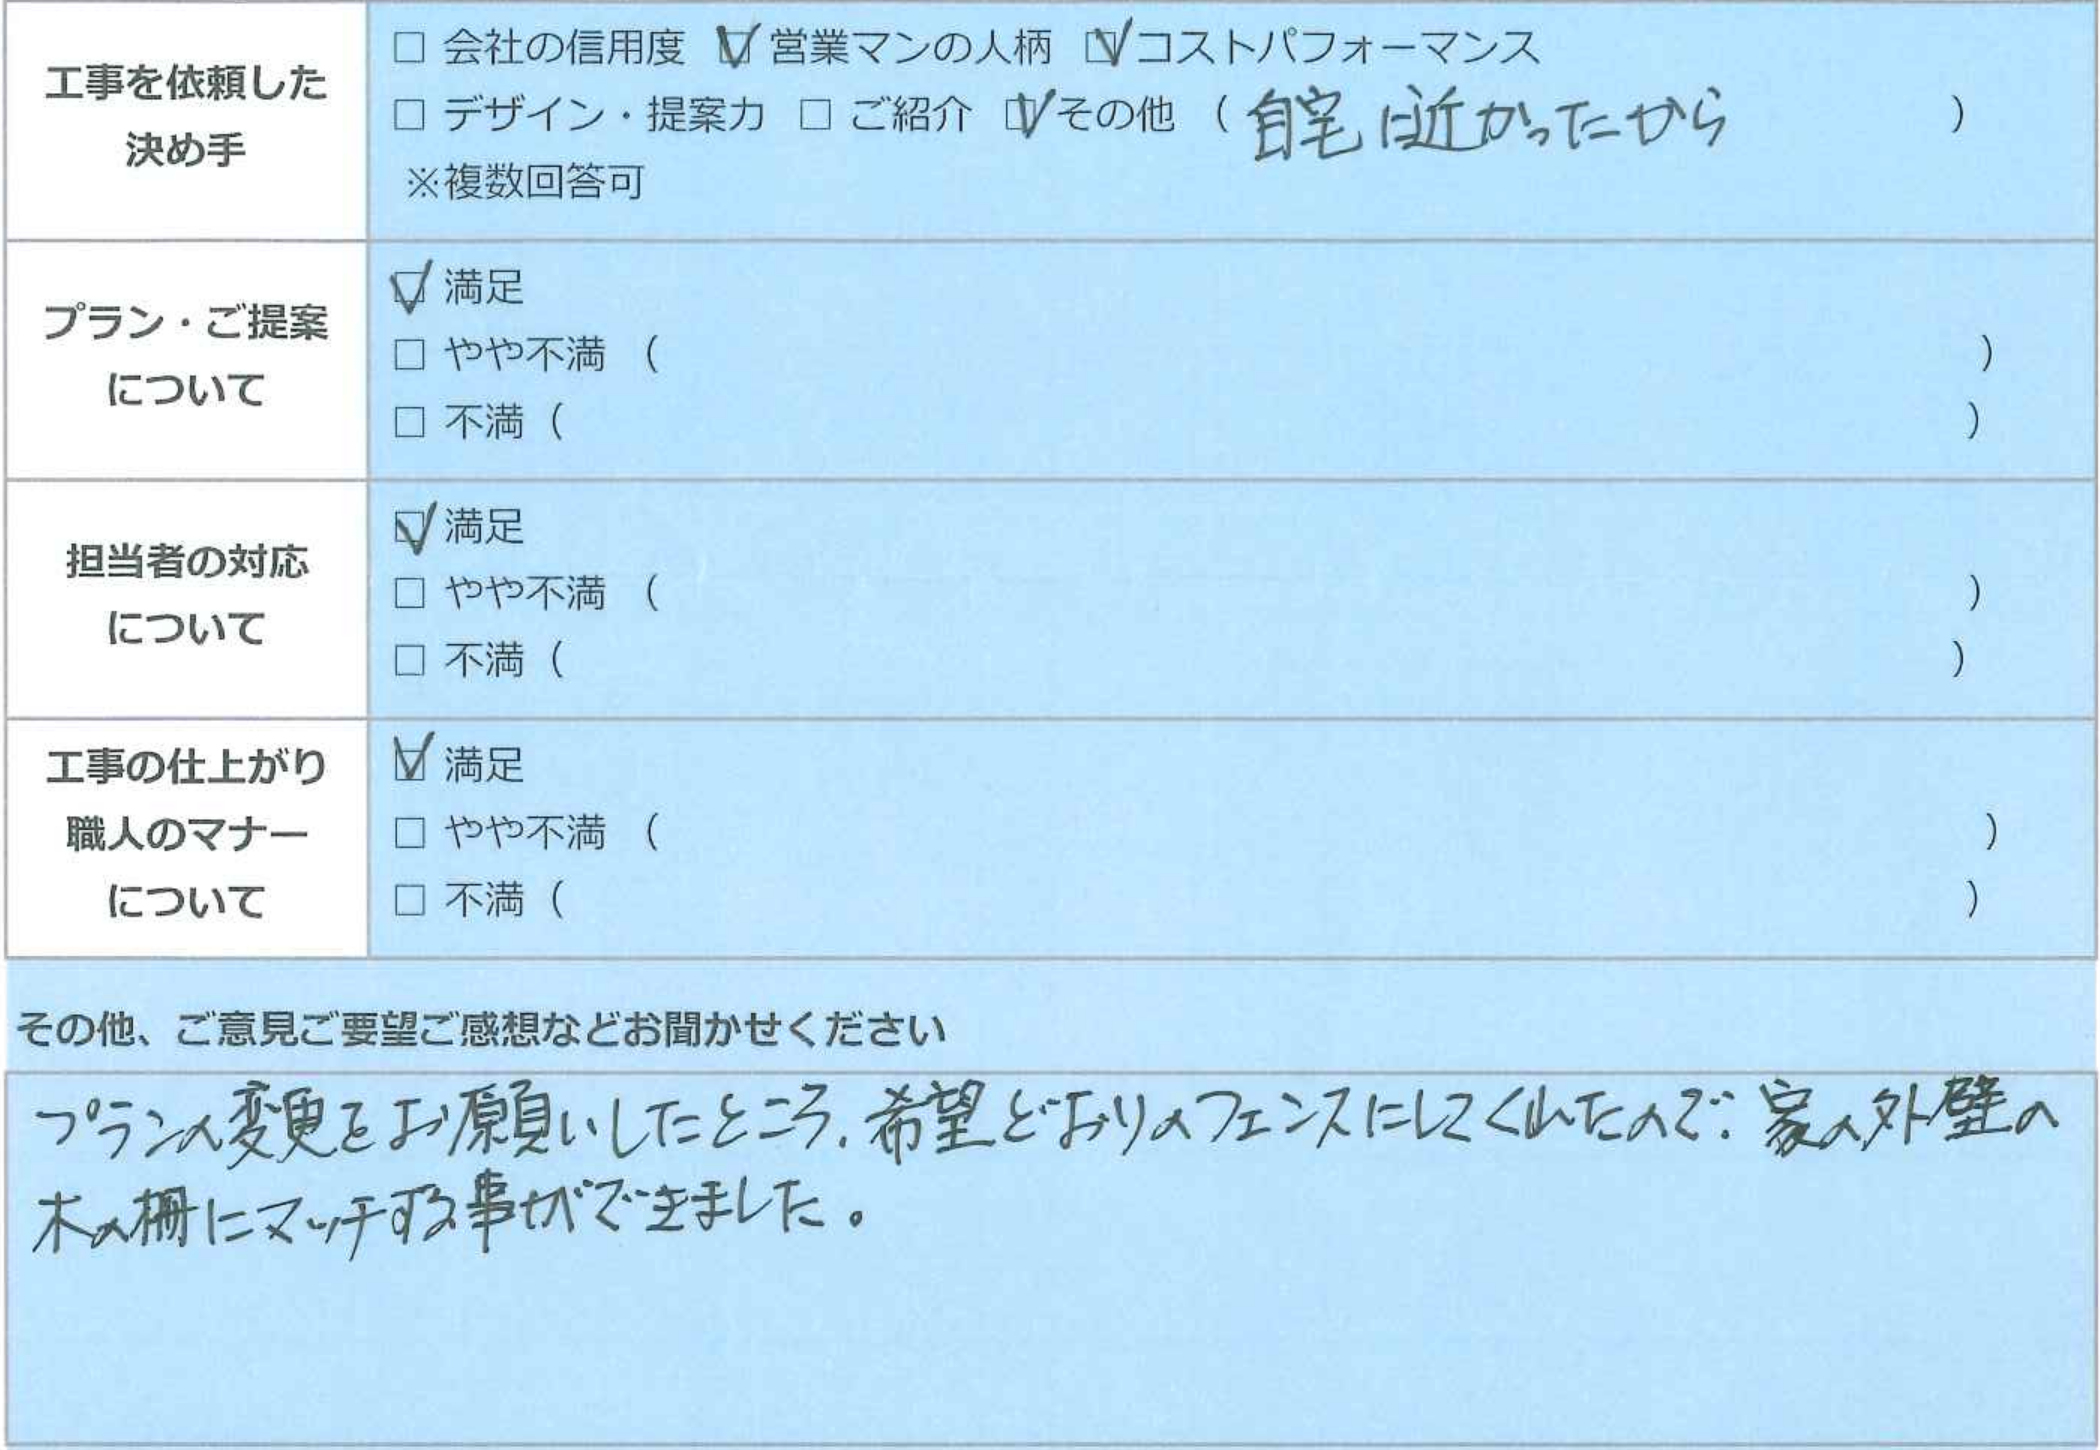 工事を依頼した
決め手
□ 会社の信用度 ☑ 営業マンの人柄 ☑ コストパフォーマンス
□ デザイン・提案力 □ ご紹介 ☑ その他 ( 自宅に近かったから )
※複数回答可
プラン・ご提案
について
☑ 満足
□ やや不満 ( )
□ 不満 ( )
担当者の対応
について
☑ 満足
□ やや不満 ( )
□ 不満 ( )
工事の仕上がり
職人のマナー
について
☑ 満足
□ やや不満 ( )
□ 不満 ( )
その他、ご意見ご要望ご感想などお聞かせください
プランの変更をお願いしたところ、希望どおりのフェンスにしてくれたので、家の外壁の
木の柵にマッチする事ができました。